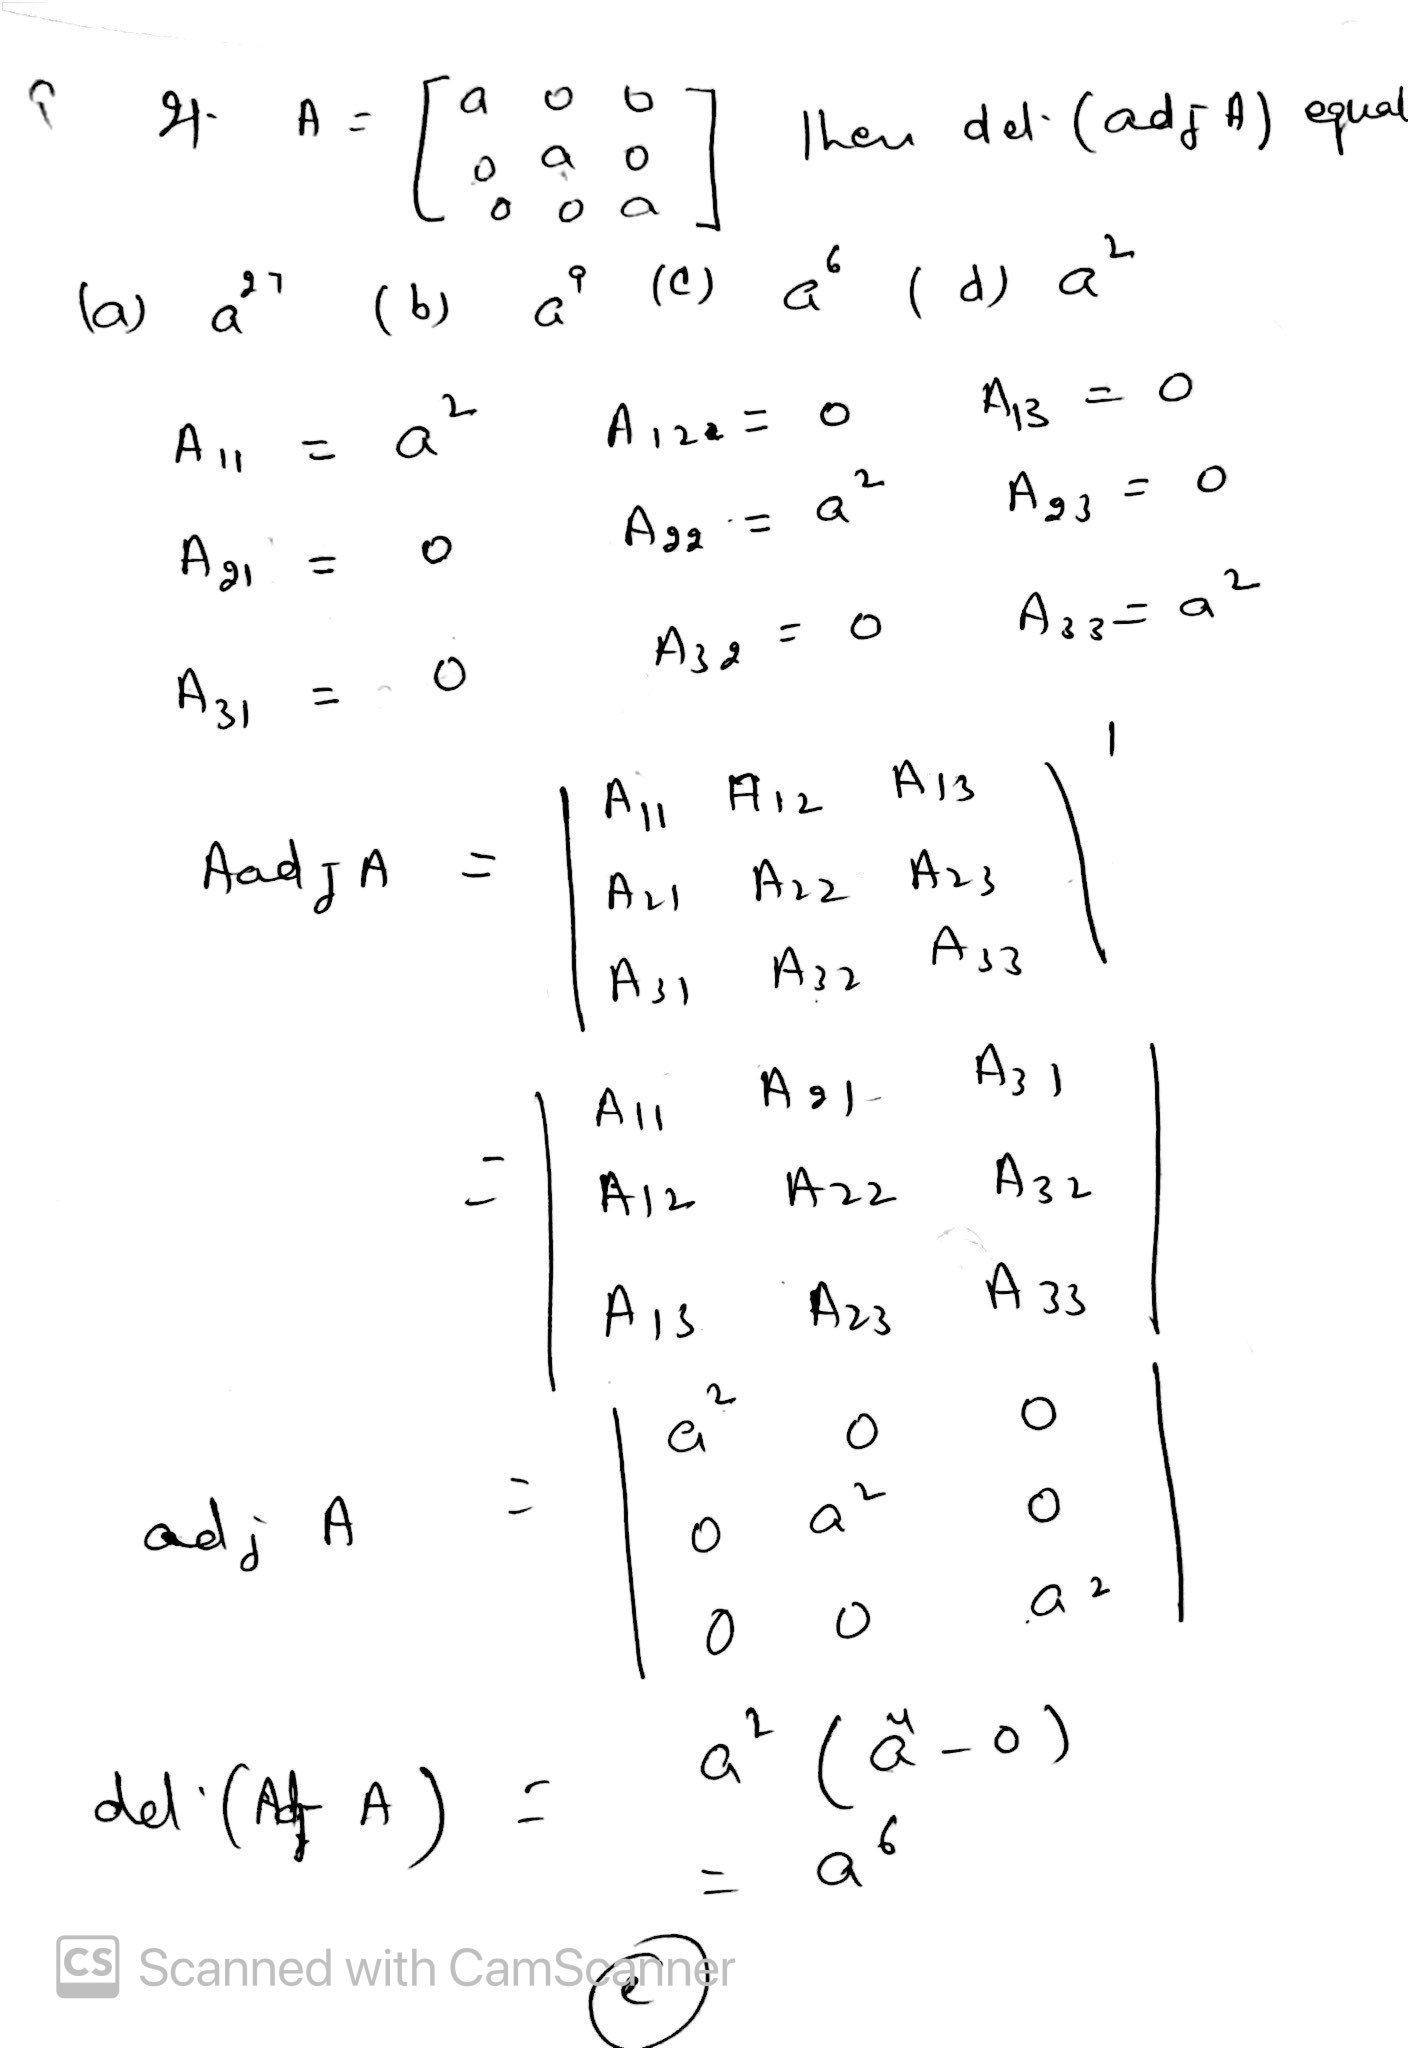 ? If. A = [ a 0 0 ] Then det. (adj A) equal
0 a 0
0 0 a
(a) a^27 (b) a^9 (c) a^6 (d) a^2
A11 = a^2 A122 = 0 A13 = 0
A21 = 0 A22 = a^2 A23 = 0
A31 = 0 A32 = 0 A33 = a^2
Aadj A = | A11 A12 A13 | '
A21 A22 A23
A31 A32 A33
= | A11 A21 A31 |
A12 A22 A32
A13 A23 A33
adj A = | a^2 0 0 |
0 a^2 0
0 0 a^2
det.(Adj A) = a^2 (a^4 - 0)
= a^6
CS Scanned with CamScanner